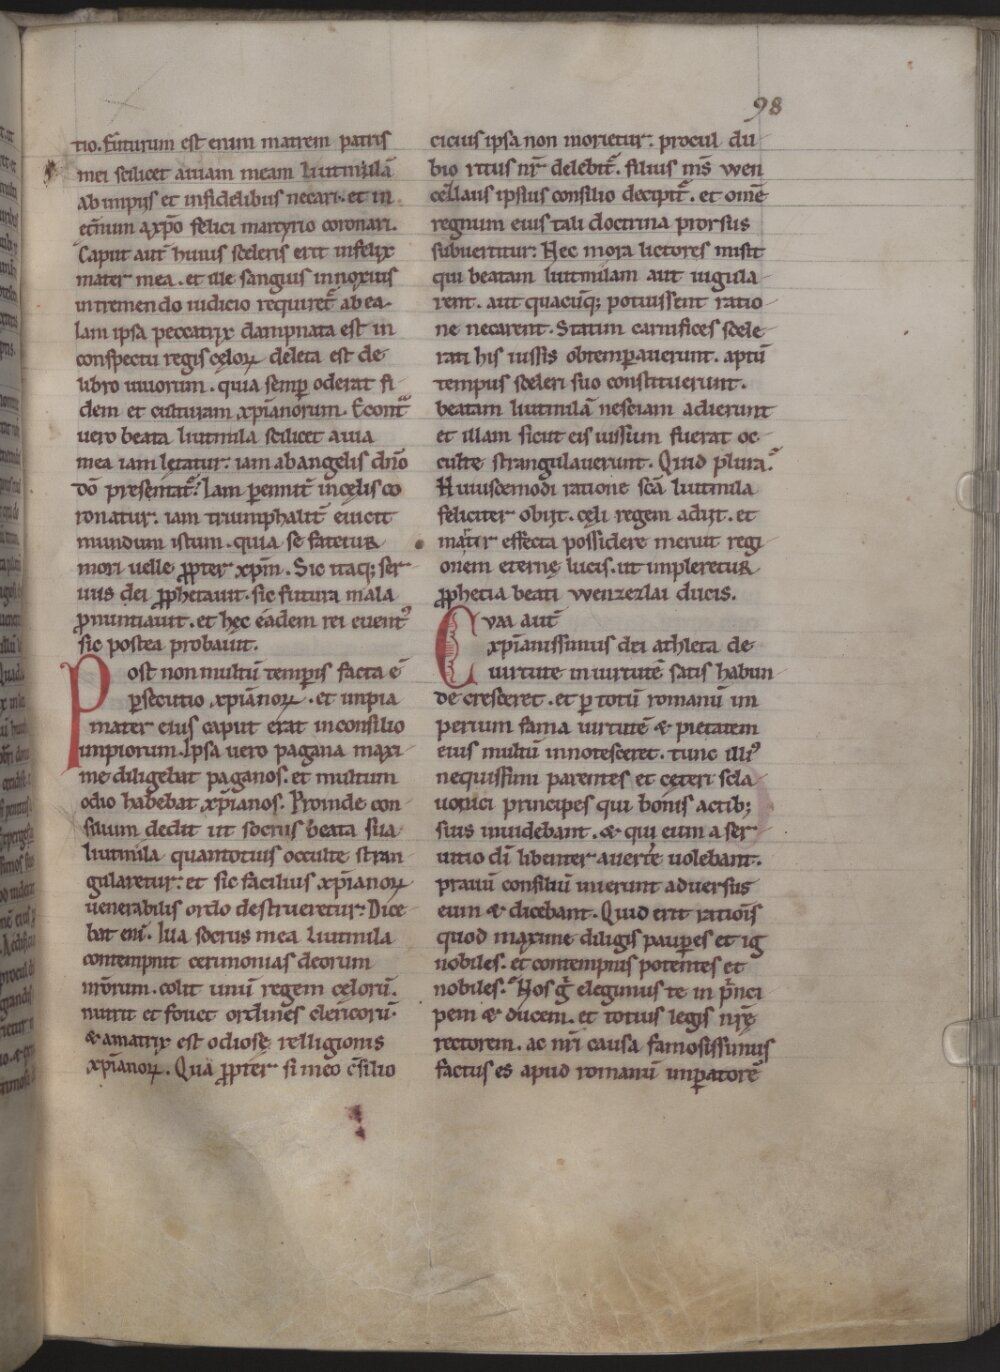 98
tio. Futurum est enim matrem patris
mei scilicet auiam meam liutmilā
ab impijs et infidelibus necari. et in
et̄num a xp̄o felici martyrio coronari.
Caput aut̄ huius sceleris erit infelix
mater mea. et ille sanguis innoxius
in tremendo iudicio requiret᷑ ab ea.
Iam ipsa peccatrix dampnata est in
conspectu regis cęloꝝ deleta est de
libro uiuorum. quia semꝑ oderat fi
dem et culturam xp̄ianorum. Econt̃
uero beata liutmila scilicet auia
mea iam lętatur. iam ab angelis dn̄o
dō presentat᷑. Iam ꝑennit̄ in cęlis co
ronatur. iam triumphalit̄ euicit
mundum istum. quia se fatetur
mori uelle ꝓpter xp̄m. Sic itaq; ser
uus dei ꝓphetauit. sic futura mala
ꝓnuntiauit. et hęc eadem rei euent᷒
sic postea probauit.
Post non multū temꝑis facta ē
ꝑsecutio xp̄ianoꝝ. et impia
mater eius caput erat in consilio
impiorum. Ipsa uero pagana maxi
me diligebat paganos. et multum
odio habebat xp̄ianos. Proinde con
silium dedit ut socrus beata sua
liutmila quantotius occulte stran
gularetur. et sic facilius xp̄ianoꝝ
uenerabilis ordo destrueretur. Dice
bat enī. Iua socrus mea liutmila
contempnit cerimonias deorum
nr̄orum. colit unū regem cęlorū.
nutrit et fouet ordines clericorū.
& amatrix est odiosę relligionis
xp̄ianoꝝ. Quā ꝓpter si meo c̄silio
cicius ipsa non morietur. procul du
bio ritus nr̄ delebit᷑. filius ms̄ wen
cezlaus ipsius consilio decipit᷑. et om̄e
regnum eius tali doctrina prorsus
subuertitur. Hec mora lictores misit
qui beatam liutmilam aut iugula
rent. aut quacūq; potuissent ratio
ne necarent. Statim carnifices scele
rati his iussis obtemꝑauerunt. aptū
tempus sceleri suo constituerunt.
beatam liutmilā nesciam adierunt
et illam sicut eis iussum fuerat oc
culte strangulauerunt. Quid plura?
Huiuscemodi ratione sc̄a liutmila
feliciter obijt. cęli regem adijt. et
mar̄tir effecta possidere meruit regi
onem eternę lucis. ut impleretur
ꝓphetia beati wenzezlai ducis.
Cvm aut̄
xp̄ianissimus dei athleta de
uirtute in uirtutē satis habun
de cresceret. et ꝑ totū romanū im
perium fama uirtutē & pietatem
eius multū innotesceret. tunc illi᷒
nequissimi parentes et cęteri scla
uonici principes qui bonis actib;
suis inuidebant. & qui eum a ser
uitio dī libenter auert̄e uolebant.
prauū consiliū inierunt aduersus
eum & dicebant. Quid erit ratiōis
quod maxime diligis pauꝑes et ig
nobiles. et contempnis potentes et
nobiles? Nos g̊ elegimus te in p̄nci
pem & ducem. et totius legis nrę̄
rectorem. ac nr̄i causa famosissimus
factus es apud romanū imꝑatorē